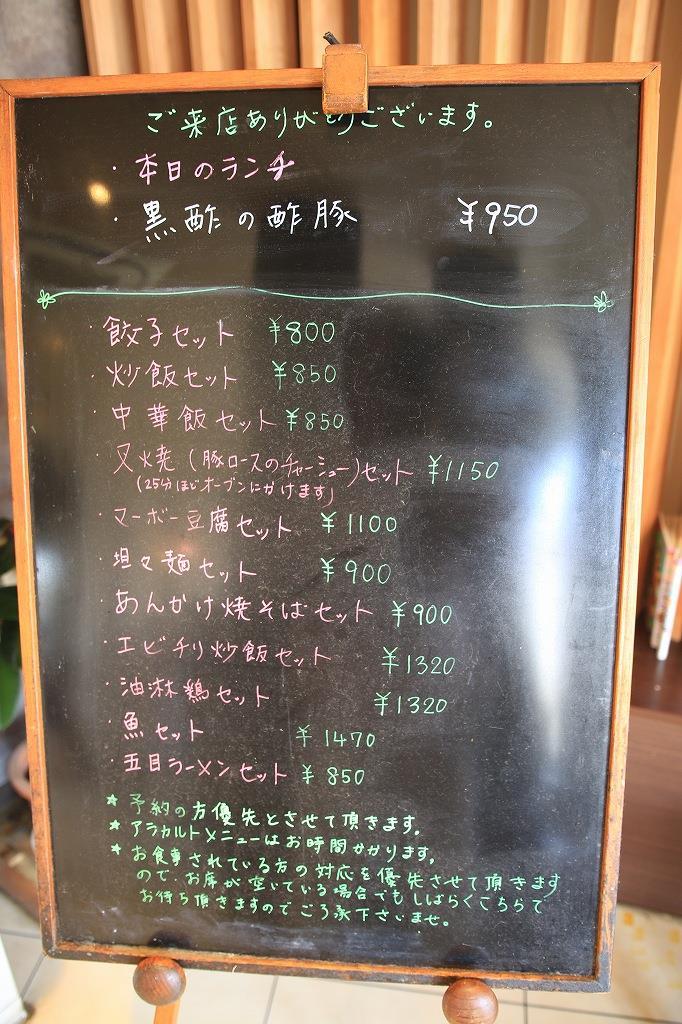 ご来店ありがとうございます。
・本日のランチ
・黒酢の酢豚 ¥950
・餃子セット ¥800
・炒飯セット ¥850
・中華飯セット ¥850
・叉焼(豚ロースのチャーシュー)セット ¥1150
(25分ほどオーブンにかけます)
・マーボー豆腐セット ¥1100
・坦々麺セット ¥900
・あんかけ焼そばセット ¥900
・エビチリ炒飯セット ¥1320
・油淋鶏セット ¥1320
・魚セット ¥1470
・五目ラーメンセット ¥850
★予約の方優先とさせて頂きます。
★アラカルトメニューはお時間かかります。
★お食事されている方の対応を優先させて頂きます
ので、お席が空いている場合でもしばらくこちらで
お待ち頂きますのでご了承下さいませ。